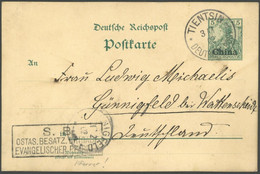 Deutsche Reichspost
Postkarte
TIENTSIN
5 5
China
An
Frau Ludwig Michaelis
Günnigfeld bei Wattenscheid
Deutschland
S. B.
OSTAS. BESATZ.
EVANGELISCHER